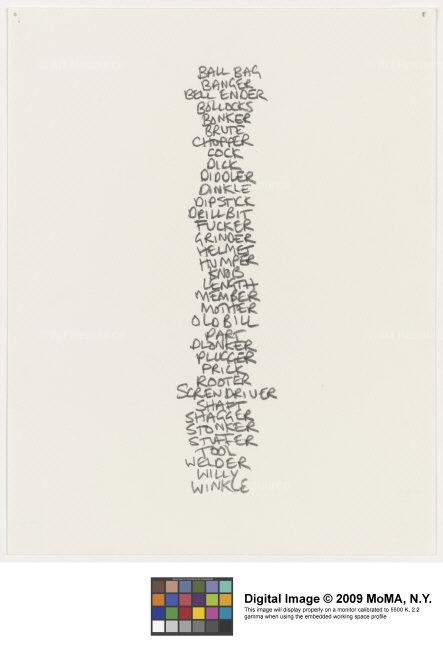 BALL BAG
BANGER
BELL ENDER
BOLLOCKS
BONKER
BRUTE
CHOPPER
COCK
DICK
DIDDLER
DINKLE
DIPSTICK
DRILLBIT
FUCKER
GRINDER
HELMET
HUMPER
KNOB
LENGTH
MEMBER
MOTHER
OLD BILL
PART
PLONKER
PLUGGER
PRICK
ROOTER
SCREWDRIVER
SHAFT
SHAGGER
STONKER
STUFFER
TOOL
WELDER
WILLY
WINKLE
Digital Image © 2009 MoMA, N.Y.
This image will display properly on a monitor calibrated to 6500 K, 2.2
gamma when using the embedded working space profile